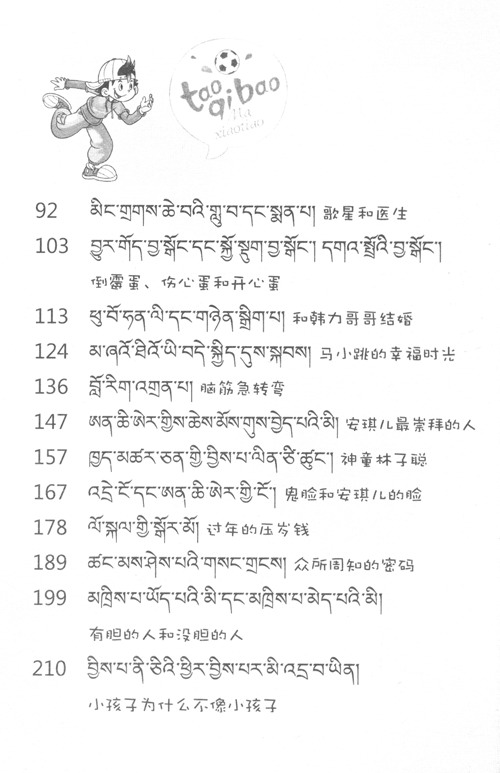 tao
qi bao
Ma
xiaotiao
92 མིང་གྲགས་ཆེ་བའི་གླུ་བ་དང་སྨན་པ། 歌星和医生
103 བྱུར་གོད་བྱ་སྒོང་དང་སྐྱོ་སྡུག་བྱ་སྒོང་། དགའ་སྤྲོའི་བྱ་སྒོང་།
倒霉蛋、伤心蛋和开心蛋
113 ཕུ་བོ་ཧན་ལི་དང་གཉེན་སྒྲིག་པ། 和韩力哥哥结婚
124 མ་ཞའོ་ཐིའོ་ཡི་བདེ་སྐྱིད་དུས་སྐབས། 马小跳的幸福时光
136 བློ་རིག་འགྲན་པ། 脑筋急转弯
147 ཨན་ཆི་ཨེར་གྱིས་ཆེས་མོས་གུས་བྱེད་པའི་མི། 安琪儿最崇拜的人
157 ཁྱད་མཚར་ཅན་གྱི་བྱིས་པ་ལིན་ཙི་ཚུང་། 神童林子聪
167 འདྲེ་ངོ་དང་ཨན་ཆི་ཨེར་གྱི་ངོ་། 鬼脸和安琪儿的脸
178 ལོ་སྐལ་གྱི་སྒོར་མོ། 过年的压岁钱
189 ཚང་མས་ཤེས་པའི་གསང་གྲངས། 众所周知的密码
199 མཁྲིས་པ་ཡོད་པའི་མི་དང་མཁྲིས་པ་མེད་པའི་མི།
有胆的人和没胆的人
210 བྱིས་པ་ནི་ཅིའི་ཕྱིར་བྱིས་པར་མི་འདྲ་བ་ཡིན།
小孩子为什么不像小孩子